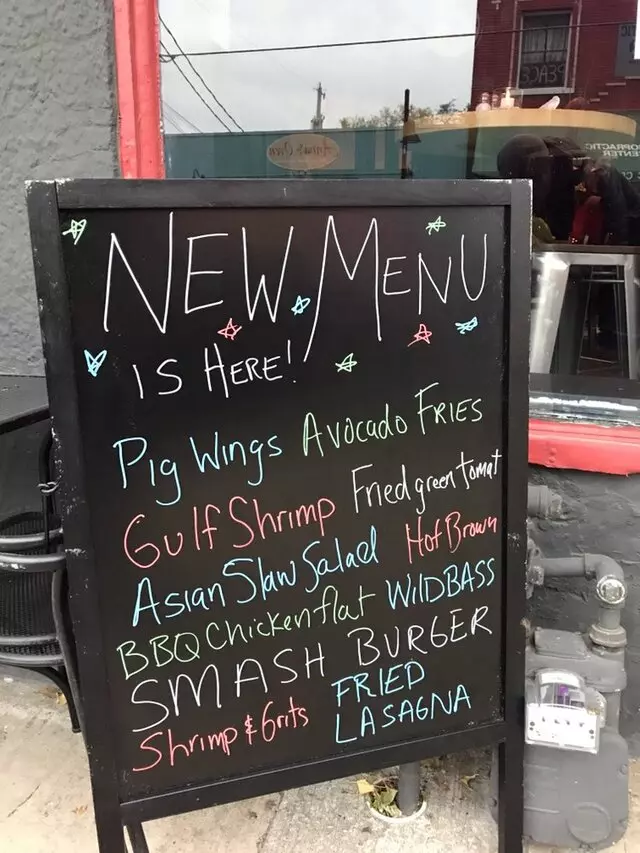 NEW MENU
IS HERE!
Pig Wings Avocado FRIES
Gulf Shrimp Fried green tomat
Asian Slaw Salad Hot Brown
BBQ Chicken flat WILD BASS
SMASH BURGER
Shrimp & Grits FRIED
LASAGNA